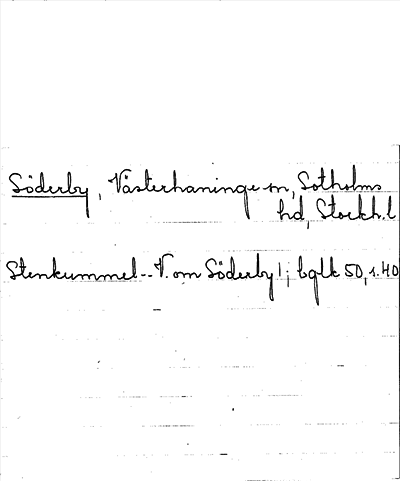 Söderby, Västerhaninge sn, Sotholms
hd, Stockh.l
Stenkummel -- V. om Söderby!; bglk 50, s. 40